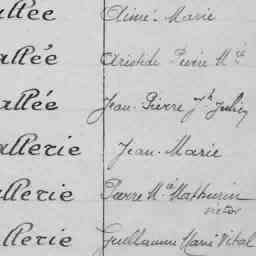 allée Aimé-Marie
allée Aristide Pierre M^ie
allée Jean-Pierre J^h Julien
allerie Jean-Marie
allerie Pierre M^ie Mathurin
Victor
allerie Guillaume Marie Vital